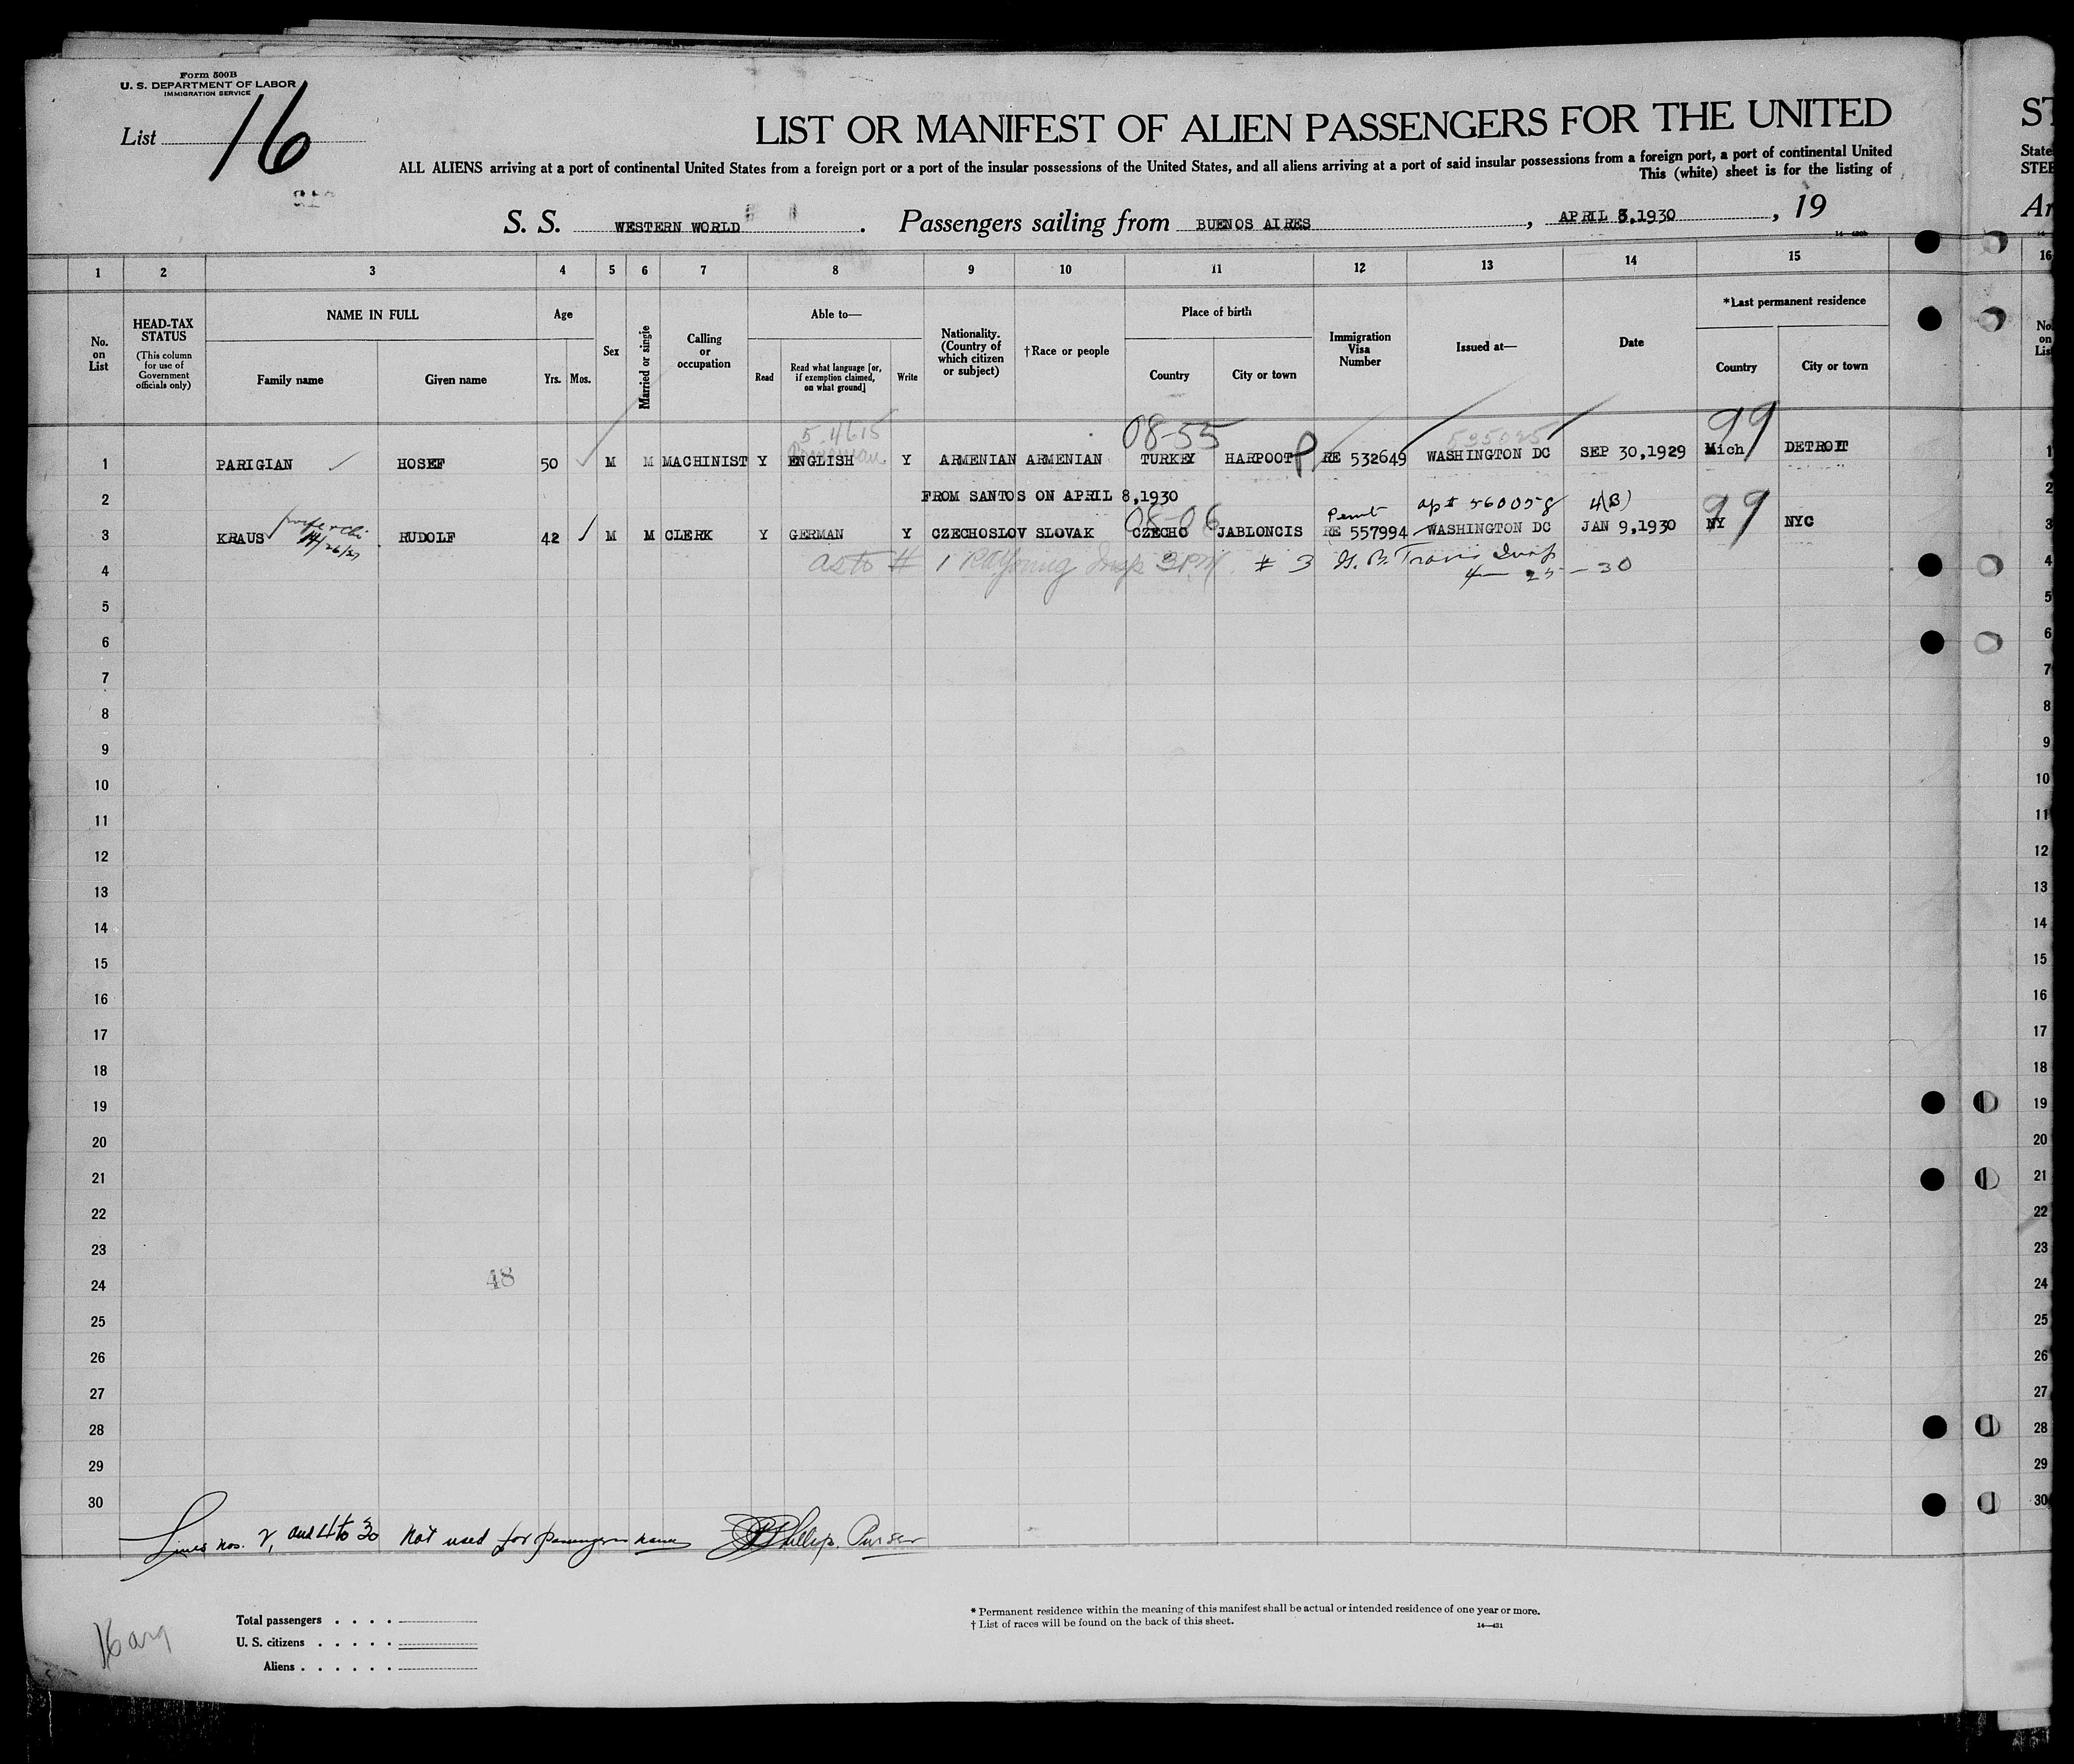 Form 500B
U. S. DEPARTMENT OF LABOR
IMMIGRATION SERVICE
List 16
LIST OR MANIFEST OF ALIEN PASSENGERS FOR THE UNITED
ALL ALIENS arriving at a port of continental United States from a foreign port or a port of the insular possessions of the United States, and all aliens arriving at a port of said insular possessions from a foreign port, a port of continental United
This (white) sheet is for the listing of
S. S. WESTERN WORLD . Passengers sailing from BUENOS AIRES , APRIL 3,1930 , 19
1 2 3 4 5 6 7 8 9 10 11 12 13 14 15 16
No. on List
HEAD-TAX STATUS
(This column for use of Government officials only)
NAME IN FULL
Family name Given name
Age
Yrs. Mos.
Sex
Married or single
Calling or occupation
Able to—
Read
Read what language [or, if exemption claimed, on what ground]
Write
Nationality. (Country of which citizen or subject)
†Race or people
Place of birth
Country City or town
Immigration Visa Number
Issued at—
Date
*Last permanent residence
Country City or town
5.4615 08-55 535025 99
1 PARIGIAN HOSEF 50 M M MACHINIST Y ENGLISH Y ARMENIAN ARMENIAN TURKEY HARPOOT P RE 532649 WASHINGTON DC SEP 30,1929 Mich DETROIT 1
2 FROM SANTOS ON APRIL 8,1930 2
08-06 Permit ap# 560058 4(B) 99
3 KRAUS RUDOLF 42 M M CLERK Y GERMAN Y CZECHOSLOV SLOVAK CZECHO JABLONCIS RE 557994 WASHINGTON DC JAN 9,1930 NY NYC 3
4 as to # 1 RA Young Insp # 3 Travis Insp 4
4-25-30
5 5
6 6
7 7
8 8
9 9
10 10
11 11
12 12
13 13
14 14
15 15
16 16
17 17
18 18
19 19
20 20
21 21
22 22
23 23
24 48 24
25 25
26 26
27 27
28 28
29 29
30 30
Lines nos. 2, and 4 to 30 not used for passengers names Phillip. Purser
Total passengers
U. S. citizens
Aliens
* Permanent residence within the meaning of this manifest shall be actual or intended residence of one year or more.
† List of races will be found on the back of this sheet.
14—431